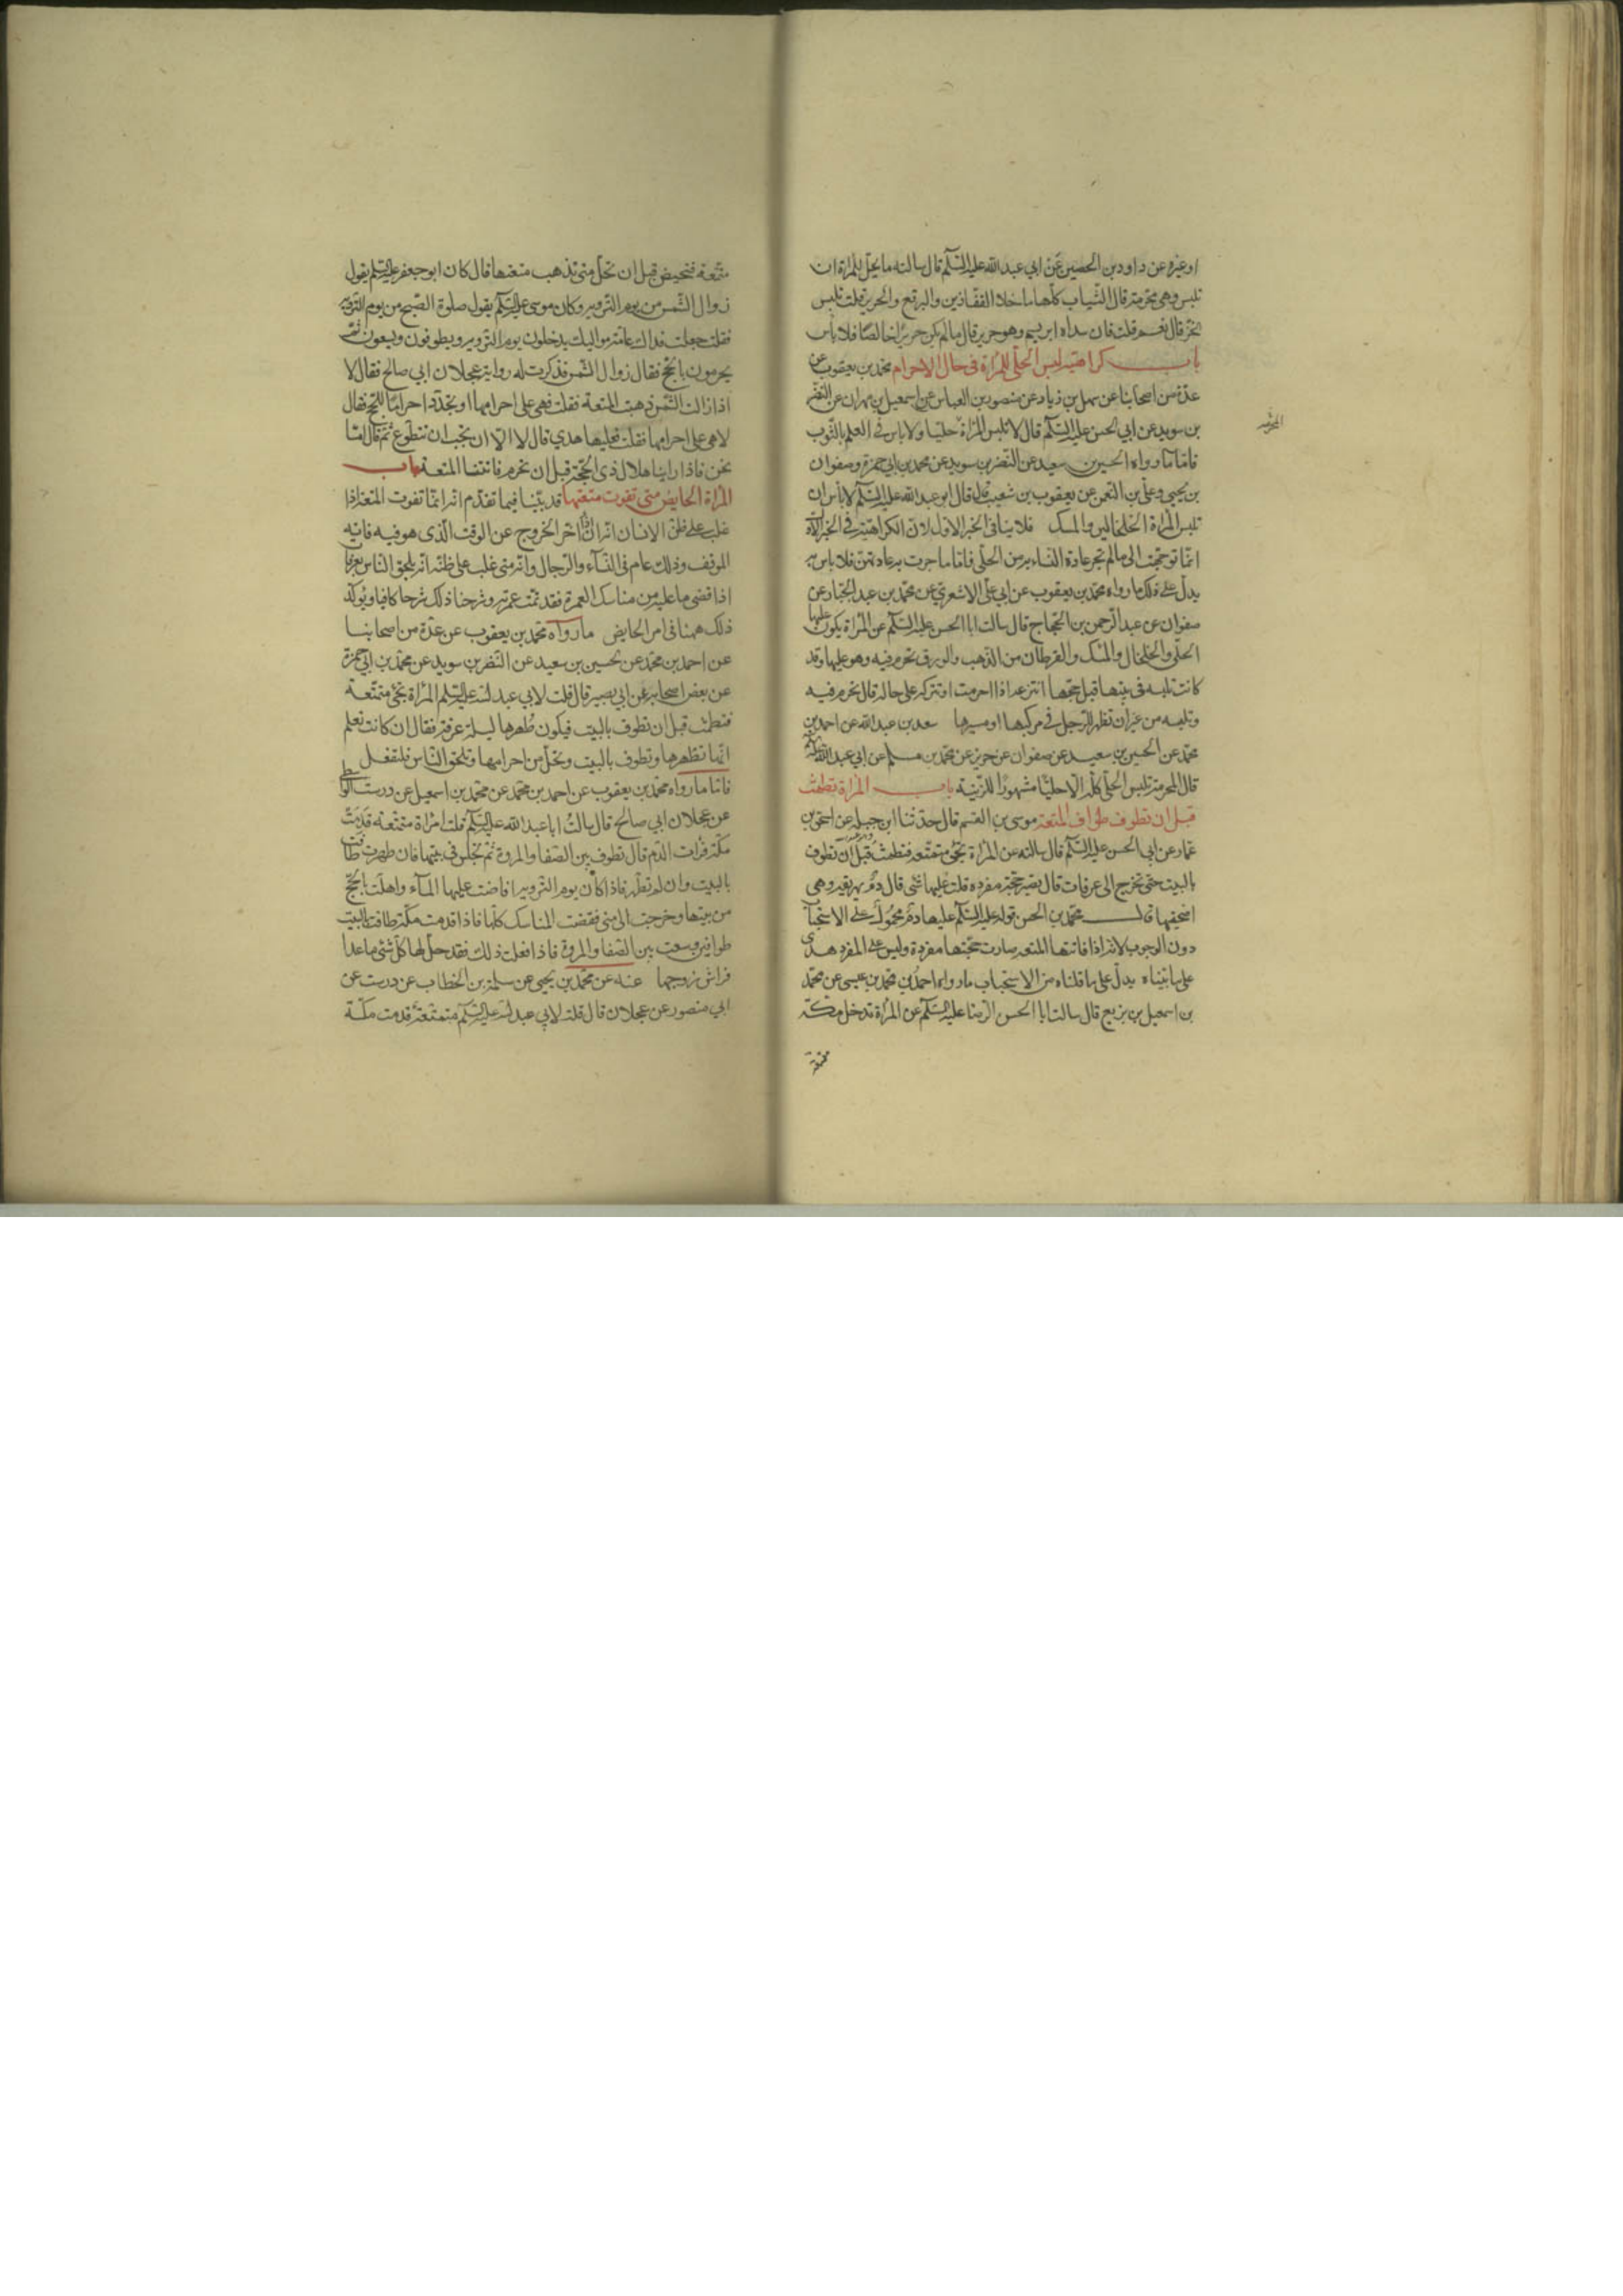 او غيره عن داود بن الحصين عن ابي عبدالله عليه السلم قال سالته ما يحل للمراة ان
تلبس وهى محرمة قال الثياب كلها ما خلا القفازين والبرقع والحرير قلت تلبس
الخز قال نعم قلت فان سداه ابريسم وهو حرير قال ما لم يكن حريرا خالصا فلا باس
باب كراهية لبس الحلى للمراة فى حال الاحرام محمد بن يعقوب عن
عدة من اصحابنا عن سهل بن زياد عن منصور بن العباس عن اسمعيل بن مهران عن النضر
بن سويد عن ابي الحسن عليه السلم قال لا تلبس المراة حليا ولا باس فى العلم بالثوب
فاما ما رواه الحسين بن سعيد عن النضر بن سويد عن محمد بن ابي حمزة وصفوان
بن يحيى وعلى بن النعمن عن يعقوب بن شعيب قال قال ابو عبدالله عليه السلم لا باس ان
تلبس المراة الخلخالين والمسك فلا ينافى الخبر الاول لان الكراهية فى الخبر الاول
انما توجهت الى ما لم تجر عادة النساء به من الحلى فاما ما جرت به عادتهن فلا باس به
يدل على ذلك ما رواه محمد بن يعقوب عن ابي على الاشعري عن محمد بن عبد الجبار عن
صفوان عن عبد الرحمن بن الحجاج قال سالت ابا الحسن عليه السلم عن المراة يكون عليها
الحلى والخلخال والمسك والقرطان من الذهب والورق تحرم فيه وهو عليها وقد
كانت تلبسه فى بيتها قبل حجها اتنزعه اذا احرمت او تتركه على حاله قال تحرم فيه
وتلبسه من غير ان تظهر للرجل فى مركبها او مسيرها سعد بن عبدالله عن احمد بن
محمد عن الحسين بن سعيد عن صفوان عن حريز عن محمد بن مسلم عن ابي عبدالله
قال المحرمة تلبس الحلى كله الا حليا مشهورا للزينة باب المراة تطمث
قبل ان تطوف طواف المتعة موسى بن القسم قال حدثنا ابن جبله عن اسحق بن
عمار عن ابي الحسن عليه السلم قال سالته عن المراة تجئ متمتعه فتطمث قبل ان تطوف
بالبيت حتى تخرج الى عرفات قال تصير حجة مفرده قلت عليها شئ قال دم يهريقه وهى
اضحيتها قال محمد بن الحسن قوله عليه السلم عليها دم محمول على الاستحباب
دون الوجوب لانه اذا فاتتها المتعه صارت حجتها مفردة وليس على المفرد هدى
على ما بيناه يدل على ما قلناه من الاستحباب ما رواه احمد بن محمد بن عيسى عن محمد
بن اسمعيل بن بزيع قال سالت ابا الحسن الرضا عليه السلم عن المراة تدخل مكة
متمتعة
متمتعة فتحيض قبل ان تحل متى تذهب متعتها قال كان ابو جعفر عليه السلم يقول
زوال الشمس من يوم التروية وكان موسى عليه السلم يقول صلوة الصبح من يوم التروية
فقلت جعلت فداك عامة مواليك يدخلون يوم التروية ويطوفون ويسعون ثم
يحرمون بالحج فقال زوال الشمس فذكرت له رواية عجلان ابي صالح فقال لا
اذا زالت الشمس ذهبت المتعة فقلت فهى على احرامها او تجدد احراما للحج فقال
لا هى على احرامها فقلت فعليها هدي قال لا الا ان تحب ان تتطوع ثم قال اما
نحن فاذا راينا هلال ذى الحجة قبل ان نحرم فاتتنا المتعة باب
المراة الحايض متى تفوت متعتها قد بينا فيما تقدم انه انما تفوت المتعة اذا
غلب على ظن الانسان انه ان اخر الخروج عن الوقت الذى هو فيه فاته
الموقف وذلك عام فى النساء والرجال وانه متى غلب على ظنه انه يلحق الناس بعرفات
اذا قضى ما عليه من مناسك العمرة فقد تمت عمرته وشرحنا ذلك شرحا كافيا ويؤكد
ذلك ههنا فى امر الحايض ما رواه محمد بن يعقوب عن عدة من اصحابنا
عن احمد بن محمد عن حسين بن سعيد عن النضر بن سويد عن محمد بن ابي حمزة
عن بعض اصحابه عن ابي بصير قال قلت لابي عبدالله عليه السلم المراة تجئ متمتعة
فتطمث قبل ان تطوف بالبيت فيكون طهرها ليلة عرفة فقال ان كانت تعلم
انها تطهر وتطوف بالبيت وتحل من احرامها وتلحق الناس فلتفعل
فاما ما رواه محمد بن يعقوب عن احمد بن محمد عن محمد بن اسمعيل عن درست الواسطى
عن عجلان ابي صالح قال سالت ابا عبدالله عليه السلم قلت امراة متمتعة قدمت
مكة فرات الدم قال تطوف بين الصفا والمروة ثم تجلس فى بيتها فان طهرت طافت
بالبيت وان لم تطهر فاذا كان يوم التروية افاضت عليها الماء واهلت بالحج
من بيتها وخرجت الى منى فقضت المناسك كلها فاذا قدمت مكة طافت بالبيت
طوافين وسعت بين الصفا والمروة فاذا فعلت ذلك فقد حل لها كل شئ ما عدا
فراش زوجها عنه عن محمد بن يحيى عن سلمة بن الخطاب عن درست عن
ابي منصور عن عجلان قال قلت لابي عبدالله عليه السلم متمتعة قدمت مكة